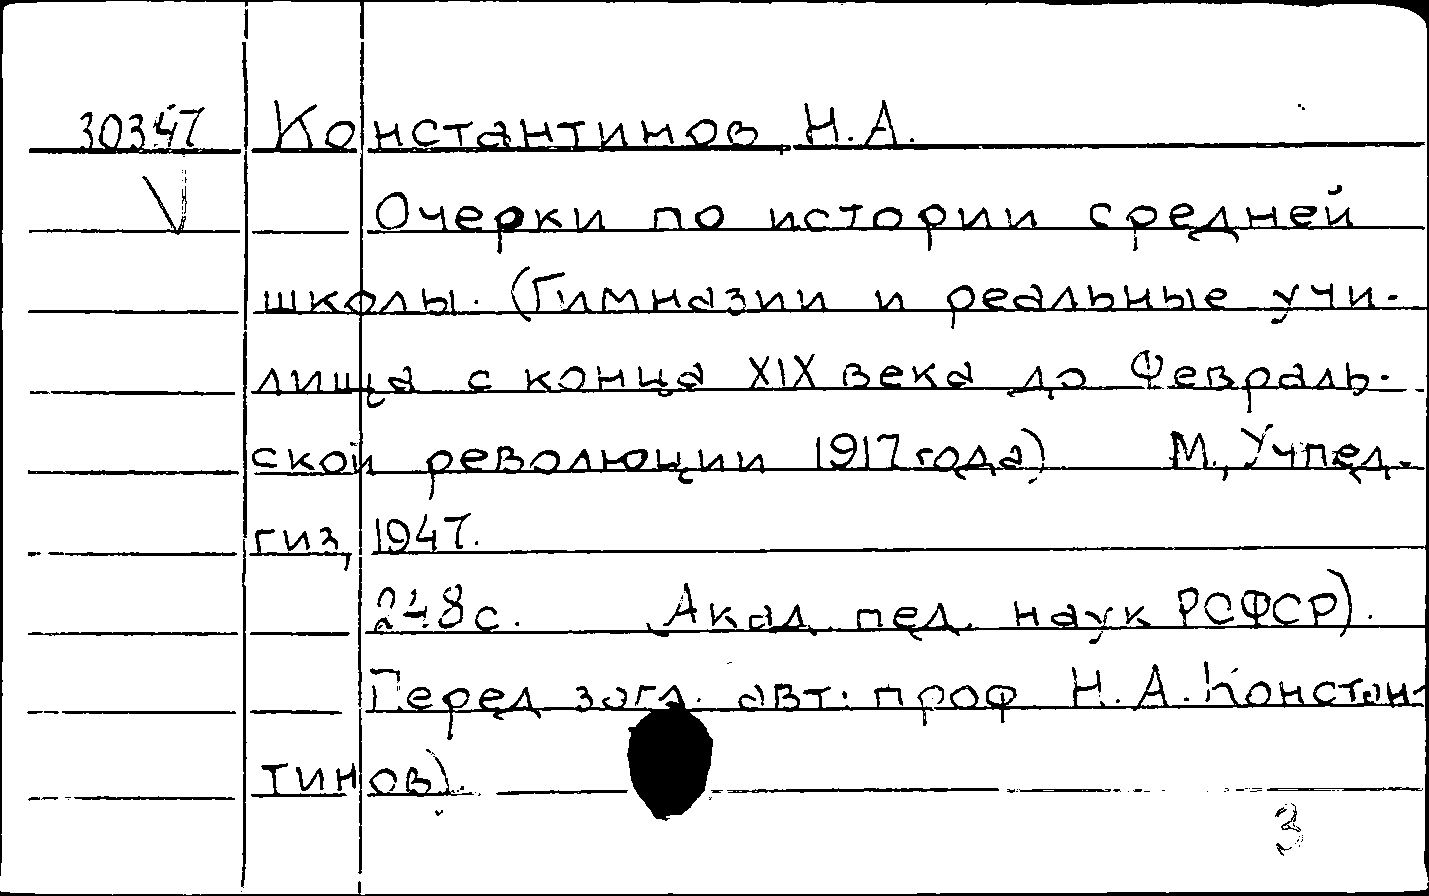 30347 Константинов Н.А.
Очерки по истории средней
школы. (Гимназии и реальные учи-
лища с конца XIX века до Февраль-
ской революции 1917 года) М., Учпед-
гиз, 1947.
248 с. Акад. пед. наук РСФСР).
Перед загл. авт: проф Н.А. Констан-
тинов).
3